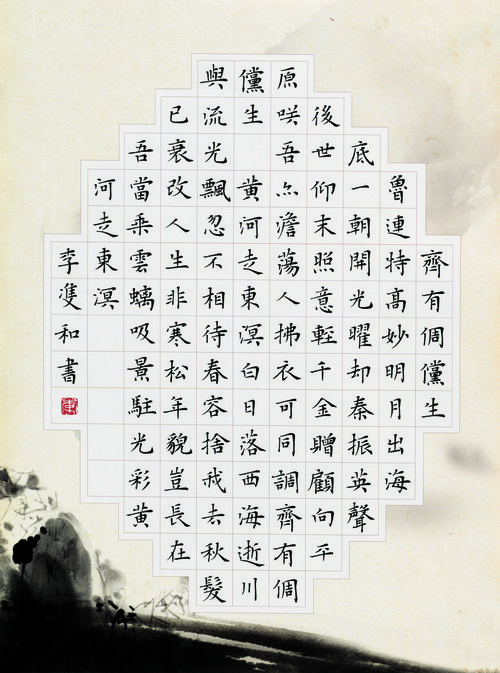 齊有倜儻生
魯連特高妙明月出海
底一朝開光曜却秦振英聲
後世仰末照意輕千金贈顧向平
原咲吾亦澹蕩人拂衣可同調齊有倜
儻生黃河走東溟白日落西海逝川
與流光飄忽不相待春容捨我去秋髮
已衰改人生非寒松年貌豈長在
吾當乘雲螭吸景駐光彩黃
河走東溟
李和書